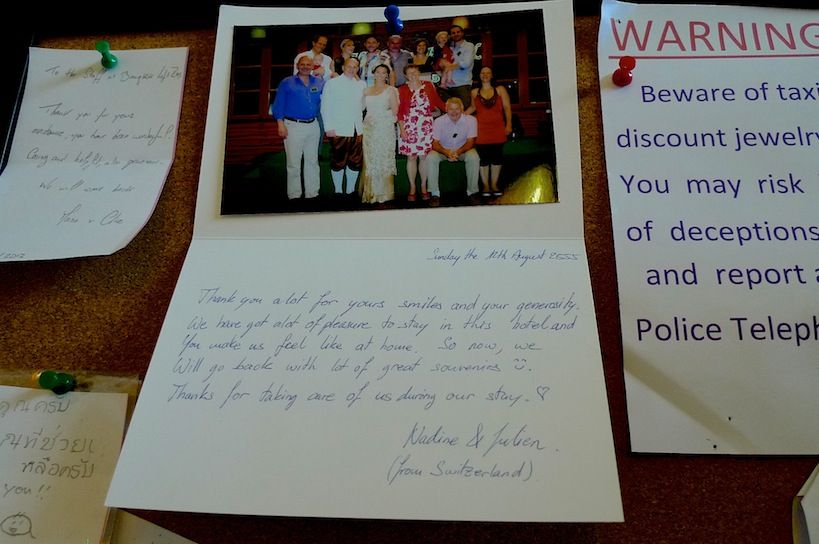 To the Staff at Bangkok
Thank you for your
you have been wonderful!
Caring and
We will come back
2012
คุณครับ
ที่ช่วยเ
หลือครับ
you!!
Sunday the 12th August 2555
Thank you a lot for yours smiles and your generosity.
We have got a lot of pleasure to stay in this hotel and
You make us feel like at home. So now, we
Will go back with lot of great souvenirs
Thanks for taking care of us during our stay.
Nadine & Julien.
(from Switzerland)
WARNING
Beware of taxi
discount jewelry
You may risk
of deceptions
and report a
Police Teleph